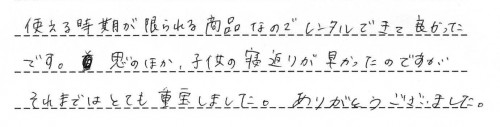 使える時期が限られる商品なのでレンタルできて良かった
です。思いのほか、子供の寝返りが早かったのですが
それまではとても重宝しました。ありがとうございました。